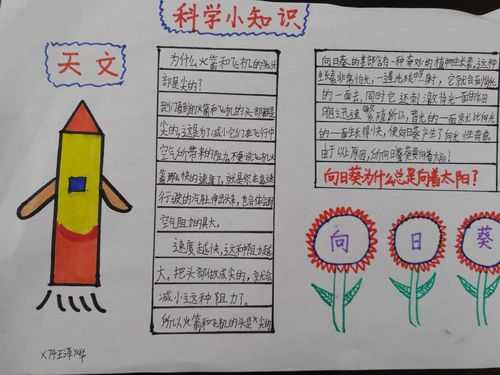 科学小知识
天文
为什么火箭和飞机的头
都是尖的?
我们看到的火箭和飞机的头都是
尖的,这是为了减小它们在飞行中
空气所带来的阻力,不要说飞机火
箭那么快的速度了,就是你在高速
行驶的汽车伸出头来,也会体会到
空气阻力的具大。
速度越快,这种阻力越
大,把头部做成尖的,就会
减小这种阻力了。
所以火箭和飞机的头是尖的
向日葵的茎部含有一种奇妙的植物生长素,这种
生长素非常怕光,一遇光线照射,它就会到背光
的一面去,同时它还刺激背光一面的细
胞迅速繁殖,所以,背光的一面就比向光
的一面生长得快,使向日葵产生了向光性弯曲
由于以上原因,所向日葵要向着太阳!
向日葵为什么总是向着太阳?
向 日 葵